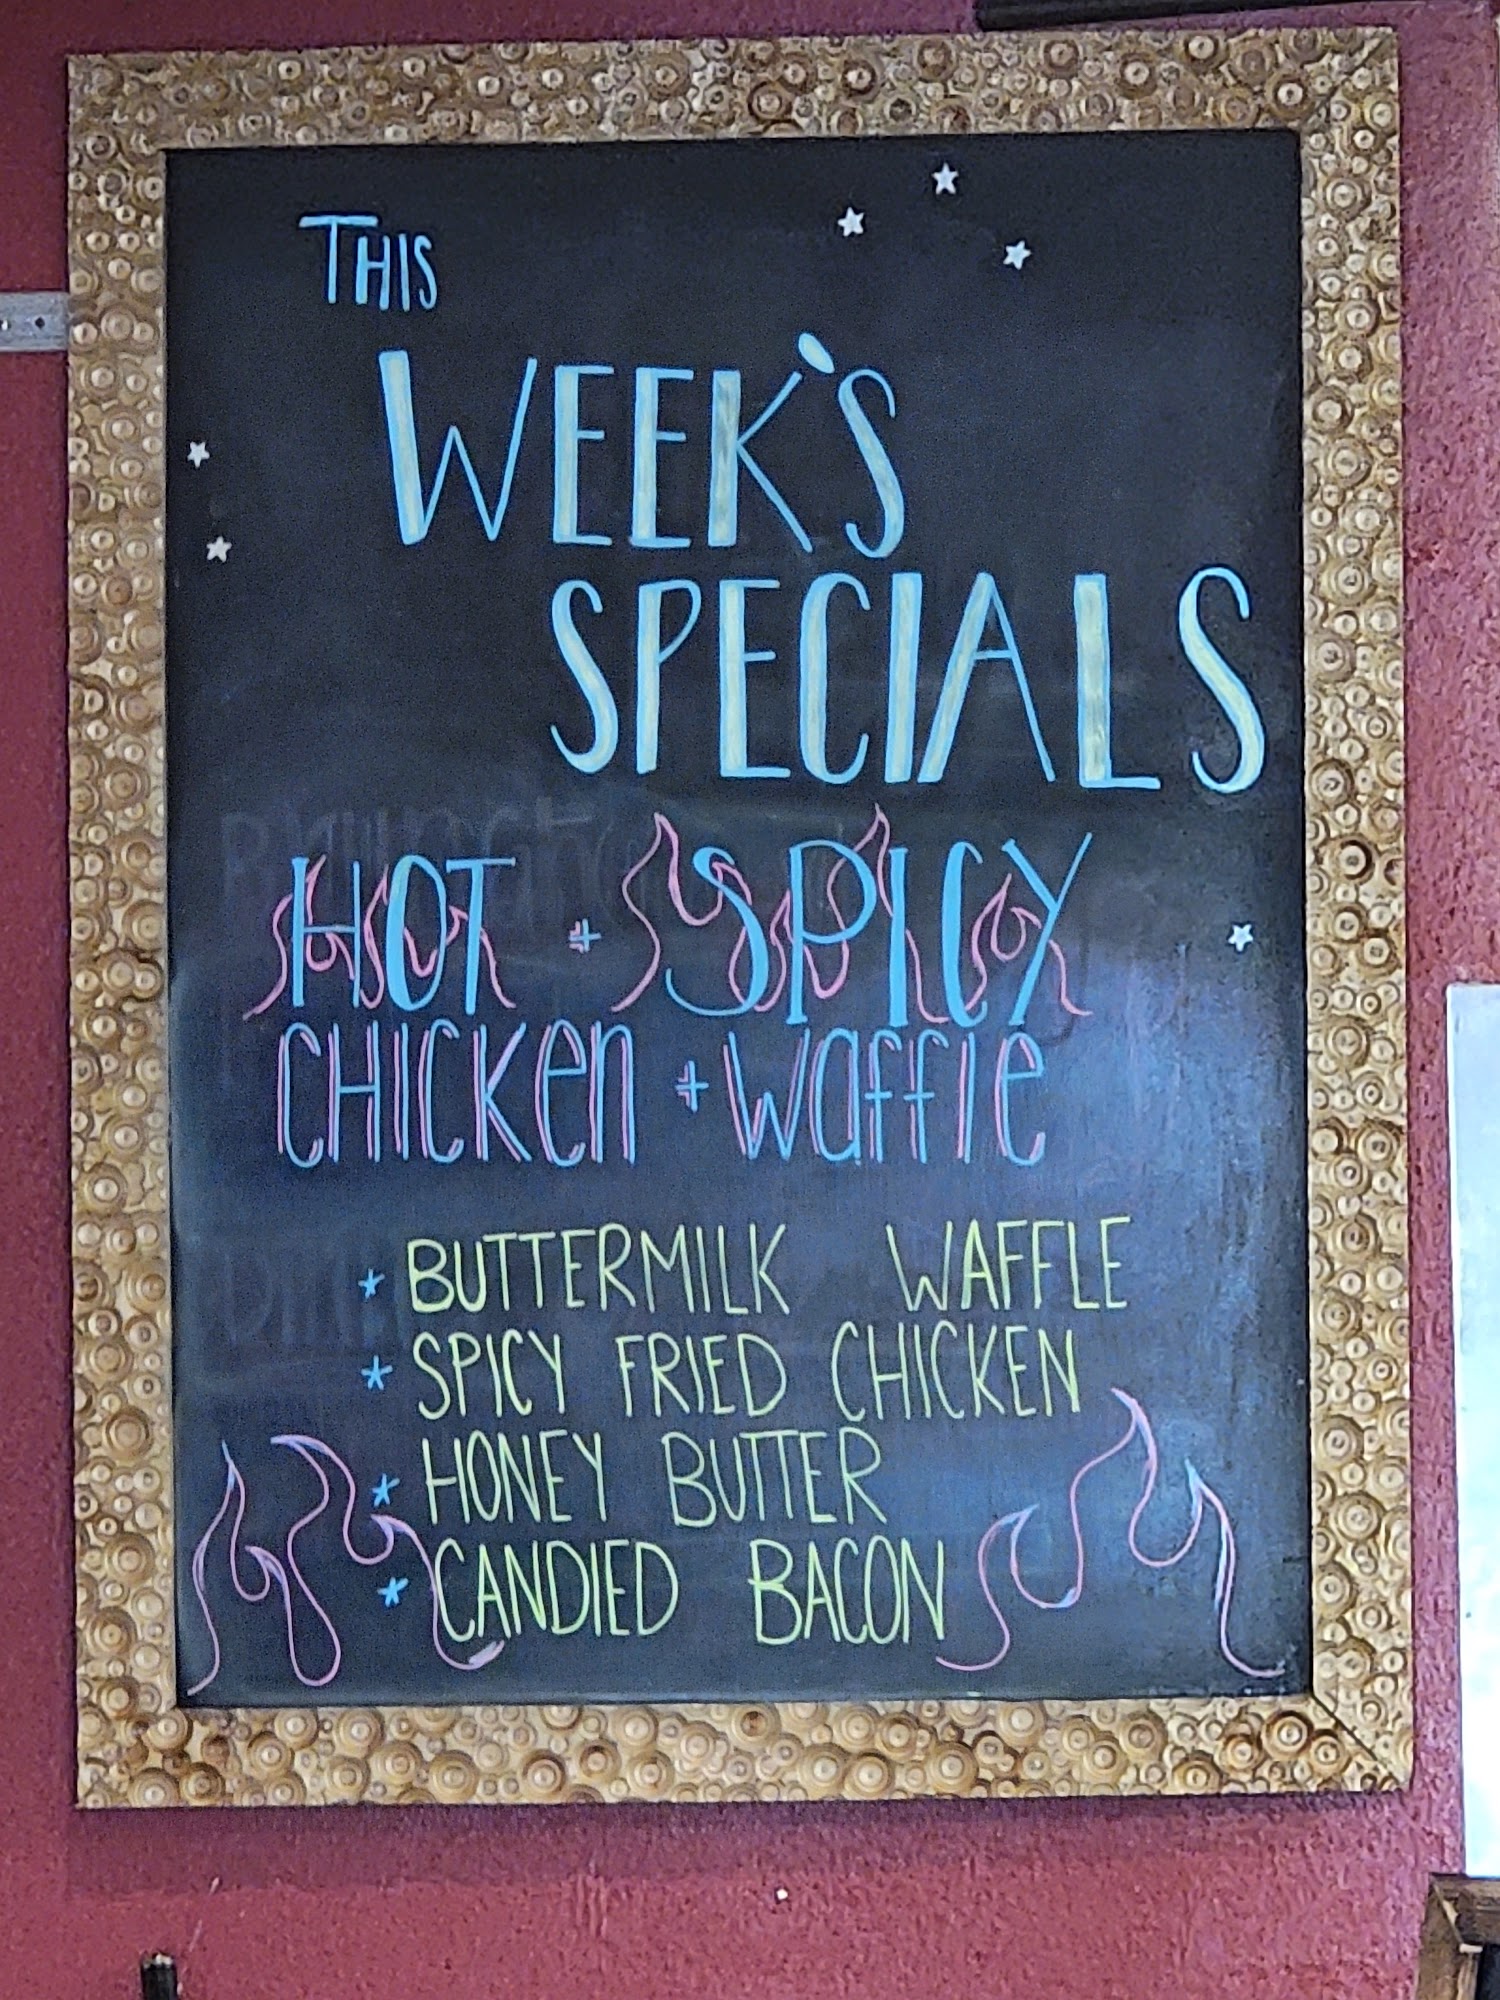 THIS
WEEK'S
SPECIALS
HOT + SPICY
CHICKEN + WAFFLE
* BUTTERMILK WAFFLE
* SPICY FRIED CHICKEN
* HONEY BUTTER
* CANDIED BACON